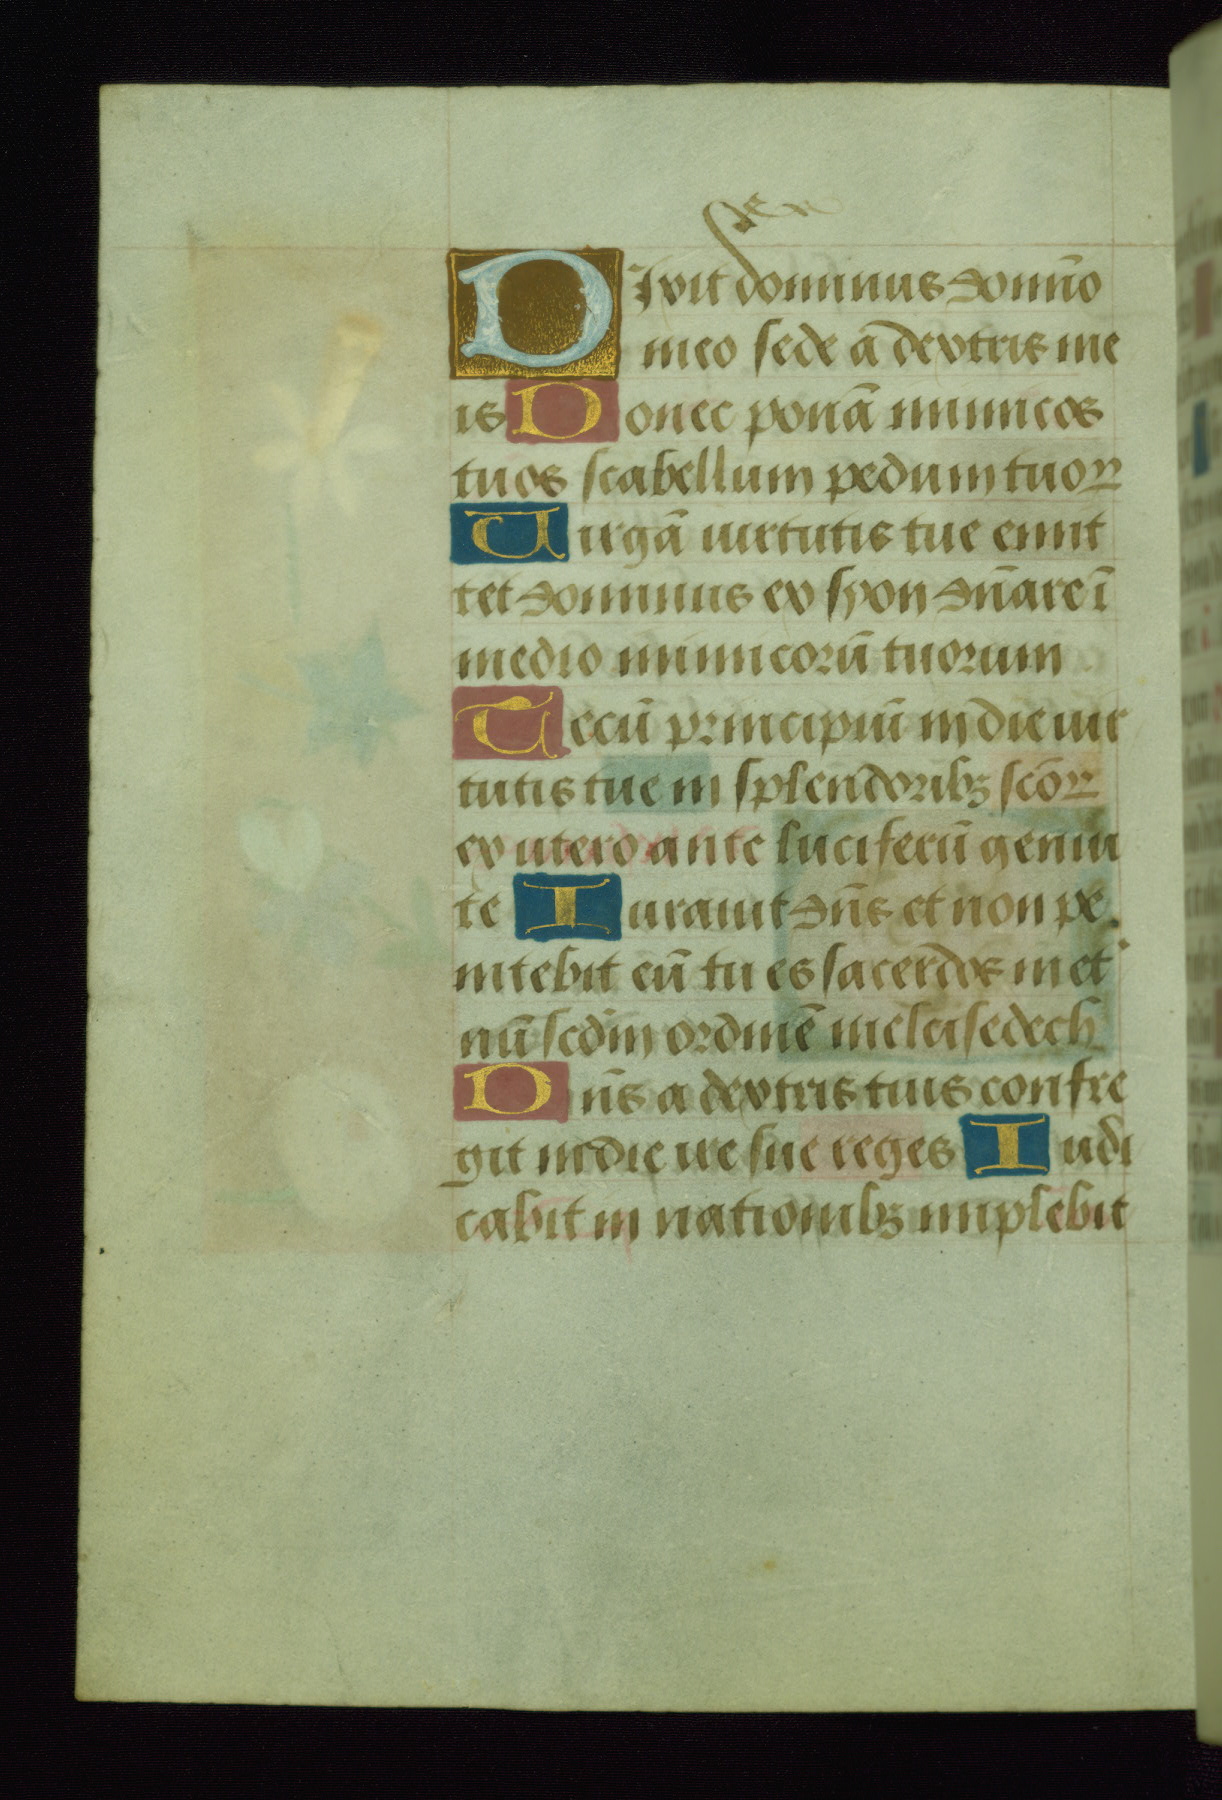 Dixit dominus domīo
meo sede a dextris me
is Donec ponā inimicos
tuos scabellum pedum tuoꝝ
Uirgā uirtutis tue emit
tet dominus ex syon dn̄are ī
medio inimicorū tuorum
Tecū principiū in die uir
tutis tue in splendoribꝫ scōꝝ
ex utero ante luciferū genui
te Iurauit dn̄s et non pe
nitebit eū tu es sacerdos in et
nū scdm̄ ordinē melcisedech
Dn̄s a dextris tuis confre
git in die ire sue reges Iudi
cabit in nationibꝫ implebit